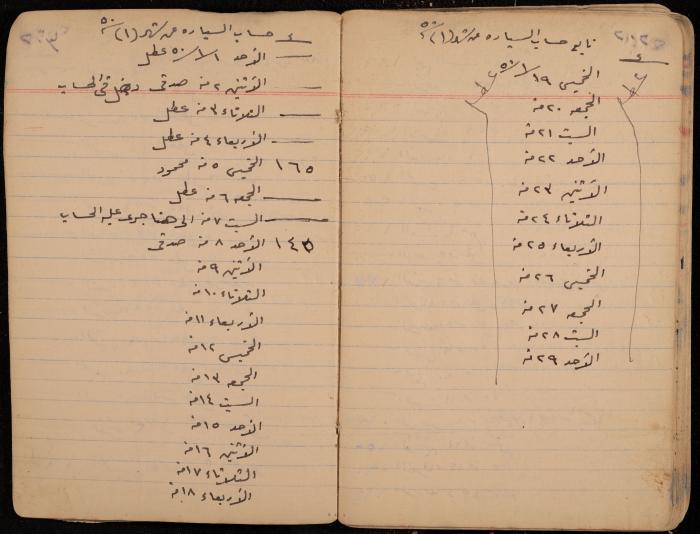 حساب السياره من شهر (١) ٥٠
الأحد ١/١/٥٠ عطل
الأثنين ٢ منه صدقى دخل فى الحساب
الثلاثاء ٣ منه عطل
الأربعاء ٤ منه عطل
١٦٥ الخميس ٥ منه محمود
الجمعه ٦ منه عطل
السبت ٧ منه الى هنا جرى عليه الحساب
١٤٥ الأحد ٨ منه صدقى
الأثنين ٩ منه
الثلاثاء ١٠ منه
الأربعاء ١١ منه
الخميس ١٢ منه
الجمعه ١٣ منه
السبت ١٤ منه
الأحد ١٥ منه
الأثنين ١٦ منه
الثلاثاء ١٧ منه
الأربعاء ١٨ منه
تابع حساب السياره من شهر (١) ٥٠
الخميس ١٩/١/٥٠
الجمعه ٢٠ منه
السبت ٢١ منه
الأحد ٢٢ منه
الأثنين ٢٣ منه
الثلاثاء ٢٤ منه
الأربعاء ٢٥ منه
الخميس ٢٦ منه
الجمعه ٢٧ منه
السبت ٢٨ منه
الأحد ٢٩ منه